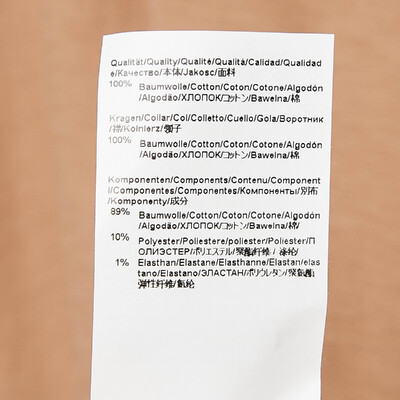 Qualität/Quality/Qualité/Qualità/Calidad/Qualidad
e/Качество/本体/Jakosc/面料
100% Baumwolle/Cotton/Coton/Cotone/Algodón
/Algodão/ХЛОПОК/コットン/Bawelna/棉
Kragen/Collar/Col/Colletto/Cuello/Gola/Воротник
/衿/Kolnierz/领子
100% Baumwolle/Cotton/Coton/Cotone/Algodón
/Algodão/ХЛОПОК/コットン/Bawelna/棉
Komponenten/Components/Contenu/Component
i/Componentes/Componentes/Компоненты/別布
/Komponenty/成分
89% Baumwolle/Cotton/Coton/Cotone/Algodón
/Algodão/ХЛОПОК/コットン/Bawelna/棉/
10% Polyester/Poliestere/poliester/Poliéster/П
ОЛИЭСТЕР/ポリエステル/聚酯纤维/涤纶/
1% Elasthan/Elastane/Elasthanne/Elastan/elas
tano/Elastano/ЭЛАСТАН/ポリウレタン/聚氨酯
弹性纤维/氨纶